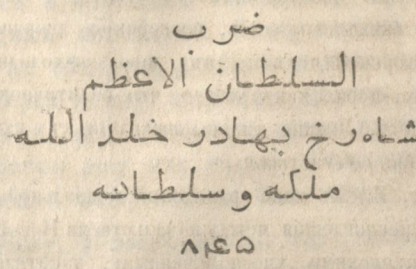 ضرب
السلطان الاعظم
شاه رخ بهادر خلد الله
ملكه وسلطانه
۸۴۵